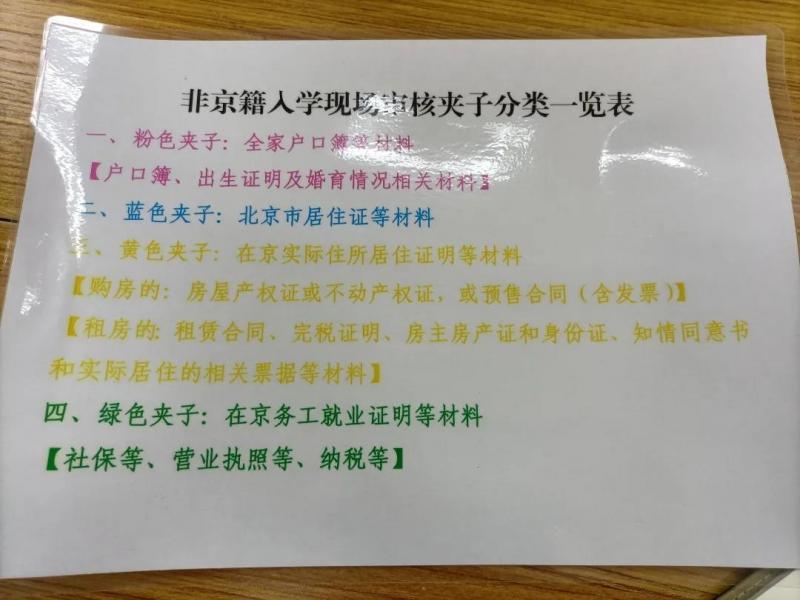 非京籍入学现场审核夹子分类一览表
一、粉色夹子：全家户口簿等材料
【户口簿、出生证明及婚育情况相关材料】
二、蓝色夹子：北京市居住证等材料
三、黄色夹子：在京实际住所居住证明等材料
【购房的：房屋产权证或不动产权证，或预售合同（含发票）】
【租房的：租赁合同、完税证明、房主房产证和身份证、知情同意书
和实际居住的相关票据等材料】
四、绿色夹子：在京务工就业证明等材料
【社保等、营业执照等、纳税等】